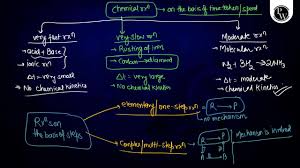 chemical rxn → on the basis of time taken / speed
very fast rxn
• acid + Base
• ionic rxn
Δt = very small
• No chemical kinetics
very slow rxn
• Rusting of iron
• Carbon → diamond
Δt = very large
• No chemical kinetics
Moderate rxn
• Molecular rxn
N2 + 3H2 → 2NH3
Δt = moderate
• Chemical kinetics
Rxn's on the basis of steps
elementary / one-step rxn
R → P
no mechanism
Complex / multi-step rxn
R P
Mechanism is involved